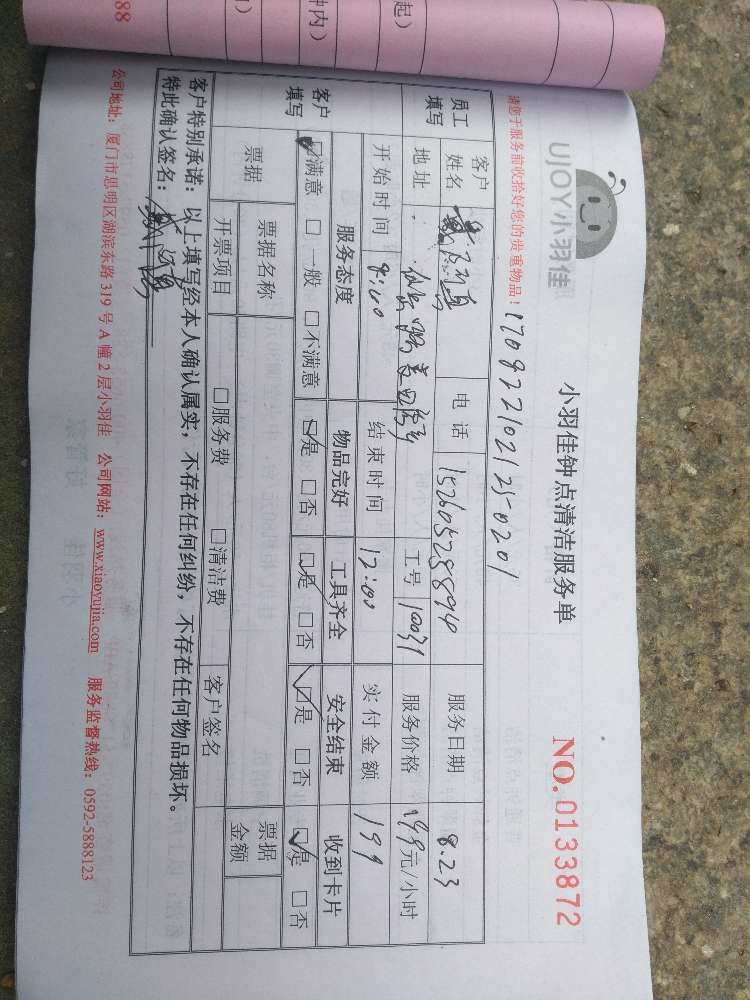 起）
钟内）
88
UJOY小羽佳
小羽佳钟点清洁服务单
NO.0133872
请您于服务前收拾好您的贵重物品！
170822102125-0201
员工填写 客户姓名 电话 15260528894 服务日期 8.23
地址 工号 10031 服务价格 199元/小时
开始时间 9:00 结束时间 12:00 实付金额 199
客户填写 服务态度 物品完好 工具齐全 安全结束 收到卡片
☑满意 □一般 □不满意 ☑是 □否 ☑是 □否 ☑是 □否 ☑是 □否
票据 票据名称 客户签名 票据金额
开票项目 □服务费 □清洁费
客户特别承诺：以上填写经本人确认属实，不存在任何纠纷，不存在任何物品损坏。
特此确认签名：
公司地址：厦门市思明区湖滨东路 319 号 A 幢 2 层小羽佳 公司网站：www.xiaoyujia.com 服务监督热线：0592-5888123